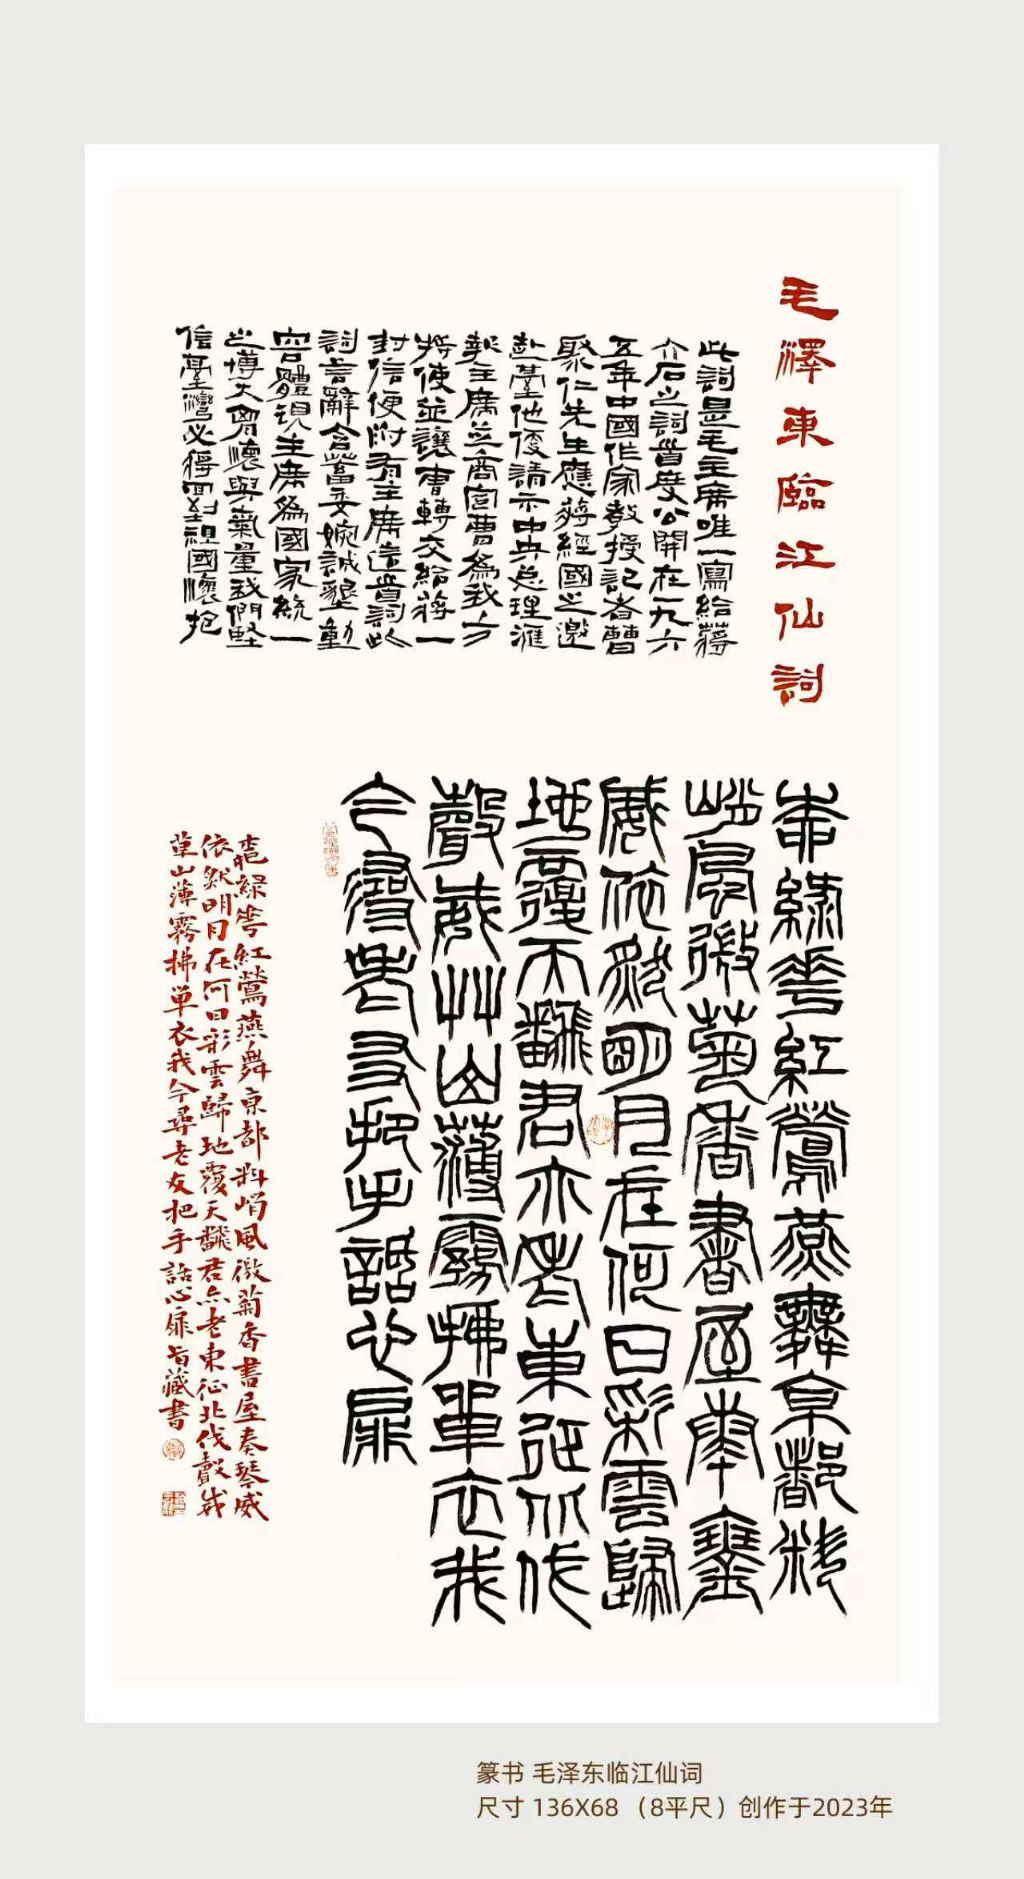 毛澤東臨江仙詞
此詞是毛主席唯一寫給蔣
介石之詞首度公開在一九六
五年中國作家教授記者曹
聚仁先生應蔣經國之邀
赴臺他優請示中央总理滙
報主席並商宜曹為我方
特使並讓曹轉交給蔣一
封信便附有主席這首詞此
詞言辭含蓄委婉誠懇動
容體現主席為國家統一
之博大胸懷與氣量我們堅
信臺灣必得回到祖國懷抱
綠花紅鶯燕舞京都料
峭風微菊香書屋奏琴
威依然明月在何日彩雲歸
地覆天翻君亦老東征北伐
聲威草山薄霧拂單衣我
今尋老友把手話心扉
綠花紅鶯燕舞京都料峭風微菊香書屋奏琴威
依然明月在何日彩雲歸地覆天翻君亦老東征北伐聲威
草山薄霧拂單衣我今尋老友把手話心扉 藏書
篆书 毛泽东临江仙词
尺寸 136X68 （8平尺）创作于2023年